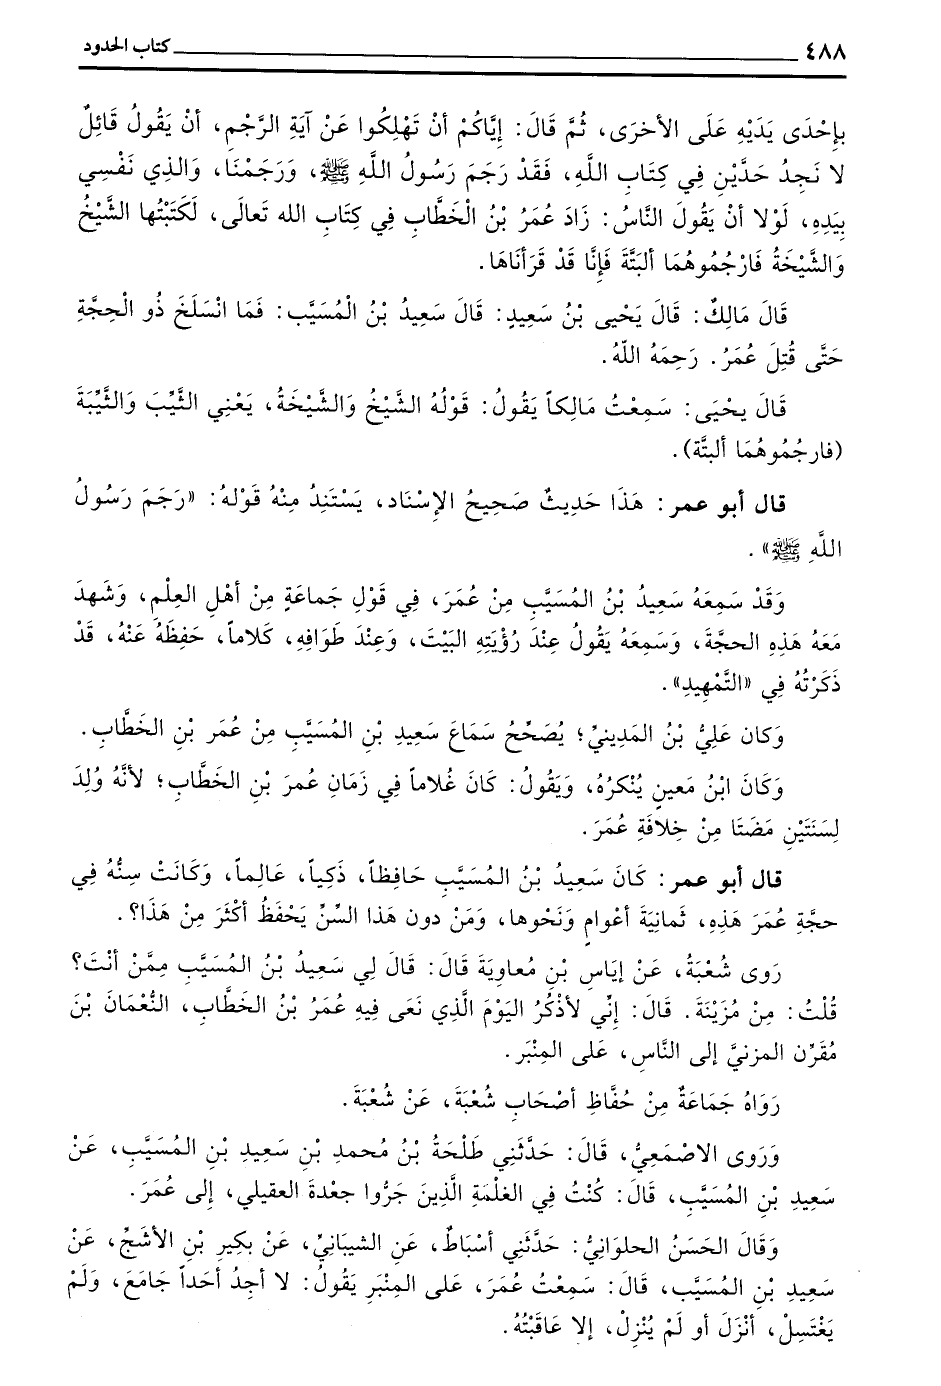 ٤٨٨ كتاب الحدود
بِإِحْدَى يَدَيْهِ عَلَى الأخرَى، ثُمَّ قَالَ: إِيَّاكُمْ أنْ تَهْلِكُوا عَنْ آيَةِ الرَّجْمِ، أنْ يَقُولُ قَائِلٌ
لا نَجِدُ حَدَّيْنِ فِي كِتَابِ اللَّهِ، فَقَدْ رَجَمَ رَسُولُ اللَّهِ ﷺ، وَرَجَمْنَا، وَالذِي نَفْسِي
بِيَدِهِ، لَوْلا أنْ يَقُولَ النَّاسُ: زَادَ عُمَرُ بْنُ الْخَطَّابِ فِي كِتَابِ الله تَعالَى، لَكَتَبْتُها الشَّيْخُ
وَالشَّيْخَةُ فَارْجُمُوهُمَا ألبَتَّةَ فَإِنَّا قَدْ قَرَأنَاهَا.
قَالَ مَالِكٌ: قَالَ يَحْيى بْنُ سَعِيدٍ: قَالَ سَعِيدُ بْنُ الْمُسَيَّبِ: فَمَا انْسَلَخَ ذُو الْحِجَّةِ
حَتَّى قُتِلَ عُمَرُ. رَحِمَهُ اللّهُ.
قَالَ يحْيَى: سَمِعْتُ مَالِكاً يَقُولُ: قَوْلُهُ الشَّيْخُ وَالشَّيْخَةُ، يَعْنِي الثَّيِّبَ وَالثَّيِّبَةَ
(فارجُمُوهُمَا ألبتَّة).
قال أبو عمر: هَذَا حَدِيثٌ صَحِيحُ الإِسْنَاد، يَسْتَنِدُ مِنْهُ قَوْلهُ: «رَجَمَ رَسُولُ
اللَّهِ ﷺ».
وَقَدْ سَمِعَهُ سَعِيدُ بْنُ المُسَيَّبِ مِنْ عُمَرَ، فِي قَوْلِ جَماعَةٍ مِنْ أهْلِ العِلْمِ، وَشَهِدَ
مَعَهُ هَذِهِ الحجَّةَ، وَسَمِعَهُ يَقُولُ عِنْدَ رُؤْيَتِهِ البَيْتَ، وَعِنْدَ طَوَافِهِ، كَلاماً، حَفِظَهُ عَنْهُ، قَدْ
ذَكَرْتُهُ فِي «التَّمْهِيدِ».
وَكان عَلِيُّ بْنُ المَدِينيِّ؛ يُصَحِّحُ سَمَاعَ سَعِيدِ بْنِ المُسَيَّبِ مِنْ عُمَر بْنِ الخَطَّابِ.
وَكَانَ ابْنُ مَعينٍ يُنْكرُهُ، وَيَقُولُ: كَانَ غُلاماً فِي زَمَانِ عُمرَ بْنِ الخَطَّابِ؛ لأنَّهُ وُلِدَ
لِسَنَتَيْنِ مَضَتَا مِنْ خِلافَةِ عُمَرَ.
قال أبو عمر: كَانَ سَعِيدُ بْنُ المُسَيَّبِ حَافِظاً، ذَكِياً، عَالِماً، وَكَانَتْ سِنُّهُ فِي
حجَّةِ عُمَرَ هَذِهِ، ثَمانِيَةَ أعْوامٍ وَنَحْوها، وَمَنْ دون هَذا السِّنِّ يَحْفَظُ أكْثَرَ مِنْ هَذَا؟.
رَوى شُعْبَةُ، عَنْ إيَاسِ بْنِ مُعاوِيَةَ قَالَ: قَالَ لِي سَعِيدُ بْنُ المُسَيَّبِ مِمَّنْ أنْتَ؟
قُلْتُ: مِنْ مُزَيْنَةَ. قَالَ: إنِّي لأذْكُرُ اليَوْمَ الَّذِي نَعَى فِيهِ عُمَرُ بْنُ الخَطَّابِ، النُّعْمَانَ بْنَ
مُقَرِّن المزنيَّ إلى النَّاسِ، عَلى المِنْبَر.
رَوَاهُ جَمَاعَةٌ مِنْ حُفَّاظِ أصْحَابِ شُعْبَةَ، عَنْ شُعْبَةَ.
وَرَوى الاصْمَعِيُّ، قَالَ: حَدَّثَنِي طَلْحَةُ بْنُ مُحمدِ بْنِ سَعِيدِ بْنِ المُسَيَّبِ، عَنْ
سَعِيدِ بْنِ المُسَيَّبِ، قَالَ: كُنْتُ فِي الغلْمَةِ الَّذِينَ جَرُّوا جعْدةَ العقيلي، إلى عُمَرَ.
وَقَالَ الحَسَنُ الحلوَانِيُّ: حَدَّثَنِي أسْبَاطٌ، عَنِ الشيبَانيِّ، عَنْ بكِيرِ بْنِ الأشَجِّ، عَنْ
سَعِيدِ بْنِ المُسَيَّبِ، قَالَ: سَمِعْتُ عُمَرَ، عَلى المِنْبَرِ يَقُولُ: لا أجِدُ أحَداً جَامَعَ، وَلَمْ
يَغْتَسِلْ، أنْزَلَ أو لَمْ يُنْزِلْ، إلا عَاقَبْتُهُ.